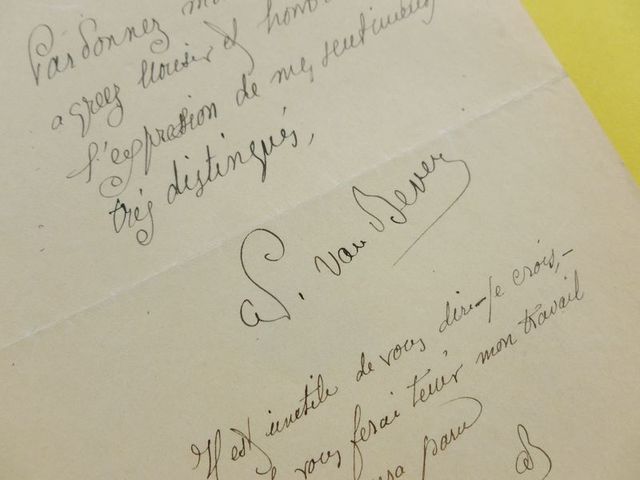 Pardonnez
agréez Monsieur & hono
l'expression de mes sentiments
très distingués,
ad. van Bever
Il est inutile de vous dire-je crois,-
vous ferai tenir mon travail
paru